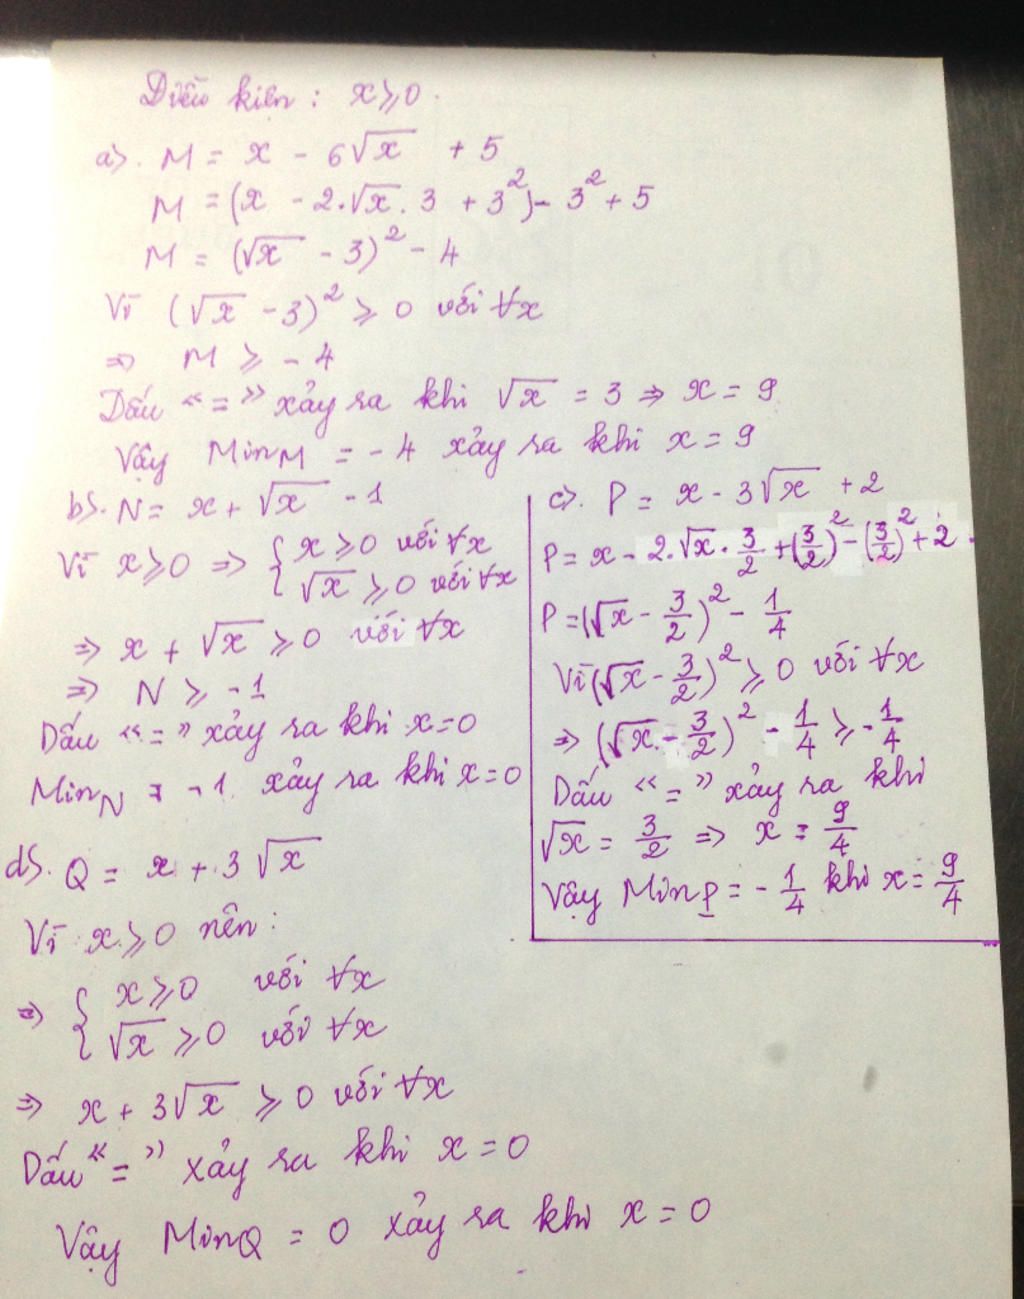 Điều kiện : x ≥ 0.
a). M = x - 6√x + 5
M = (x - 2.√x. 3 + 3²) - 3² + 5
M = (√x - 3)² - 4
Vì (√x - 3)² ≥ 0 với ∀x
⇒ M ≥ - 4
Dấu "=" xảy ra khi √x = 3 ⇒ x = 9
Vậy Min_M = - 4 xảy ra khi x = 9
b). N = x + √x - 1
Vì x ≥ 0 ⇒ { x ≥ 0 với ∀x
√x ≥ 0 với ∀x
⇒ x + √x ≥ 0 với ∀x
⇒ N ≥ -1
Dấu "=" xảy ra khi x = 0
Min_N = -1 xảy ra khi x = 0
c). P = x - 3√x + 2
P = x - 2.√x. 3/2 + (3/2)² - (3/2)² + 2.
P = (√x - 3/2)² - 1/4
Vì (√x - 3/2)² ≥ 0 với ∀x
⇒ (√x - 3/2)² - 1/4 ≥ - 1/4
Dấu "=" xảy ra khi
√x = 3/2 ⇒ x = 9/4
Vậy Min_P = - 1/4 khi x = 9/4
d). Q = x + 3√x
Vì x ≥ 0 nên :
⇒ { x ≥ 0 với ∀x
√x ≥ 0 với ∀x
⇒ x + 3√x ≥ 0 với ∀x
Dấu "=" xảy ra khi x = 0
Vậy Min_Q = 0 xảy ra khi x = 0